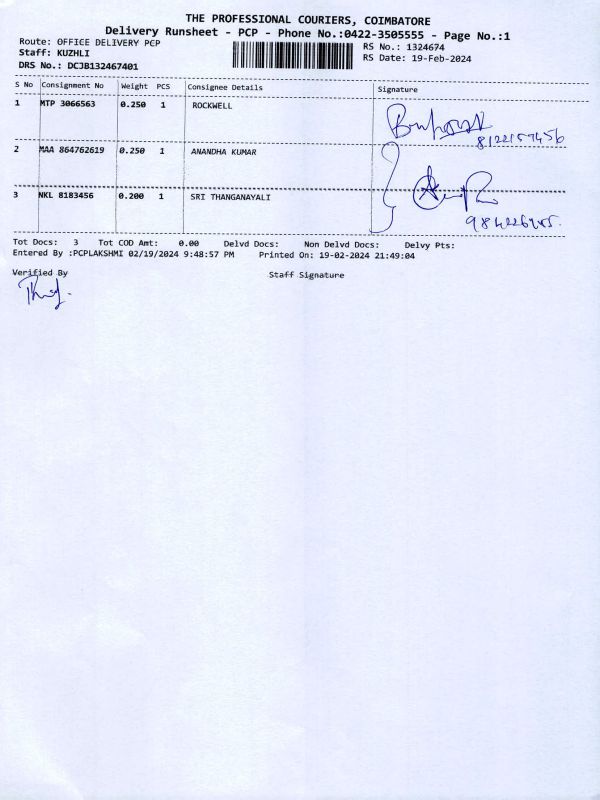 THE PROFESSIONAL COURIERS, COIMBATORE
Delivery Runsheet - PCP - Phone No.:0422-3505555 - Page No.:1
Route: OFFICE DELIVERY PCP
RS No.: 1324674
Staff: KUZHLI
RS Date: 19-Feb-2024
DRS No.: DCJB132467401
S No Consignment No Weight PCS Consignee Details Signature
1 MTP 3066563 0.250 1 ROCKWELL
8122157456
2 MAA 864762619 0.250 1 ANANDHA KUMAR
3 NKL 8183456 0.200 1 SRI THANGANAYALI
Tot Docs: 3 Tot COD Amt: 0.00 Delvd Docs: Non Delvd Docs: Delvy Pts:
Entered By :PCPLAKSHMI 02/19/2024 9:48:57 PM Printed On: 19-02-2024 21:49:04
Verified By Staff Signature